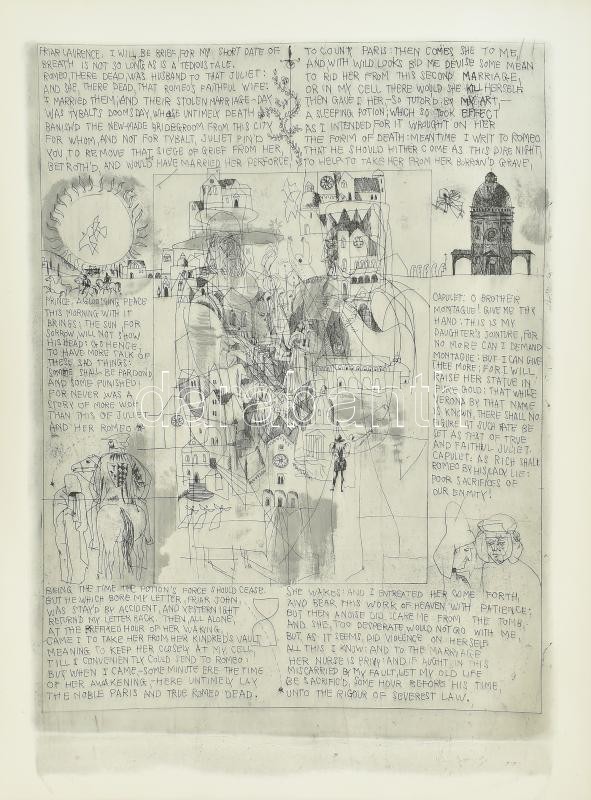 FRIAR LAURENCE: I WILL BE BRIEF, FOR MY SHORT DATE OF
BREATH IS NOT SO LONG AS IS A TEDIOUS TALE.
ROMEO, THERE DEAD, WAS HUSBAND TO THAT JULIET;
AND SHE, THERE DEAD, THAT ROMEO'S FAITHFUL WIFE:
I MARRIED THEM; AND THEIR STOLEN MARRIAGE-DAY
WAS TYBALT'S DOOMSDAY, WHOSE UNTIMELY DEATH
BANISH'D THE NEW-MADE BRIDEGROOM FROM THIS CITY
FOR WHOM, AND NOT FOR TYBALT, JULIET PIN'D
YOU, TO REMOVE THAT SIEGE OF GRIEF FROM HER,
BETROTH'D, AND WOULD HAVE MARRIED HER PERFORCE,
TO COUNT PARIS: THEN COMES SHE TO ME,
AND WITH WILD LOOKS BID ME DEVISE SOME MEAN
TO RID HER FROM THIS SECOND MARRIAGE,
OR IN MY CELL THERE WOULD SHE KILL HERSELF
THEN GAVE I HER,—SO TUTOR'D BY MY ART,—
A SLEEPING POTION; WHICH SO TOOK EFFECT
AS I INTENDED, FOR IT WROUGHT ON HER
THE FORM OF DEATH: MEANTIME I WRIT TO ROMEO
THAT HE SHOULD HITHER COME AS THIS DIRE NIGHT,
TO HELP TO TAKE HER FROM HER BORROW'D GRAVE,
PRINCE. A GLOOMING PEACE
THIS MORNING WITH IT
BRINGS; THE SUN, FOR
SORROW, WILL NOT SHOW
HIS HEAD: GO HENCE,
TO HAVE MORE TALK OF
THESE SAD THINGS:
SOME SHALL BE PARDOND
AND SOME PUNISHED:
FOR NEVER WAS A
STORY OF MORE WOE
THAN THIS OF JULIET
AND HER ROMEO
CAPULET: O BROTHER
MONTAGUE! GIVE ME THY
HAND: THIS IS MY
DAUGHTER'S JOINTURE, FOR
NO MORE CAN I DEMAND
MONTAGUE: BUT I CAN GIVE
THEE MORE; FOR I WILL
RAISE HER STATUE IN
PURE GOLD; THAT WHILE
VERONA BY THAT NAME
IS KNOWN, THERE SHALL NO
FIGURE AT SUCH RATE BE
SET AS THAT OF TRUE
AND FAITHFUL JULIET.
CAPULET. AS RICH SHALL
ROMEO BY HIS LADY LIE;
POOR SACRIFICES OF
OUR ENMITY!
darabanth
BEING THE TIME THE POTION'S FORCE SHOULD CEASE.
BUT HE WHICH BORE MY LETTER, FRIAR JOHN,
WAS STAY'D BY ACCIDENT, AND YESTERNIGHT
RETURN'D MY LETTER BACK. THEN, ALL ALONE,
AT THE PREFIXED HOUR OF HER WAKING,
CAME I TO TAKE HER FROM HER KINDRED'S VAULT
MEANING TO KEEP HER CLOSELY AT MY CELL,
TILL I CONVENIENTLY COULD SEND TO ROMEO:
BUT WHEN I CAME,—SOME MINUTE ERE THE TIME
OF HER AWAKENING,—HERE UNTIMELY LAY
THE NOBLE PARIS AND TRUE ROMEO DEAD.
SHE WAKES: AND I ENTREATED HER COME FORTH,
AND BEAR THIS WORK OF HEAVEN WITH PATIENCE;
BUT THEN A NOISE DID SCARE ME FROM THE TOMB,
AND SHE, TOO DESPERATE WOULD NOT GO WITH ME,
BUT, AS IT SEEMS, DID VIOLENCE ON HERSELF.
ALL THIS I KNOW; AND TO THE MARRIAGE
HER NURSE IS PRIVY: AND, IF AUGHT IN THIS
MISCARRIED BY MY FAULT, LET MY OLD LIFE
BE SACRIFIC'D, SOME HOUR BEFORE HIS TIME,
UNTO THE RIGOUR OF SEVEREST LAW.